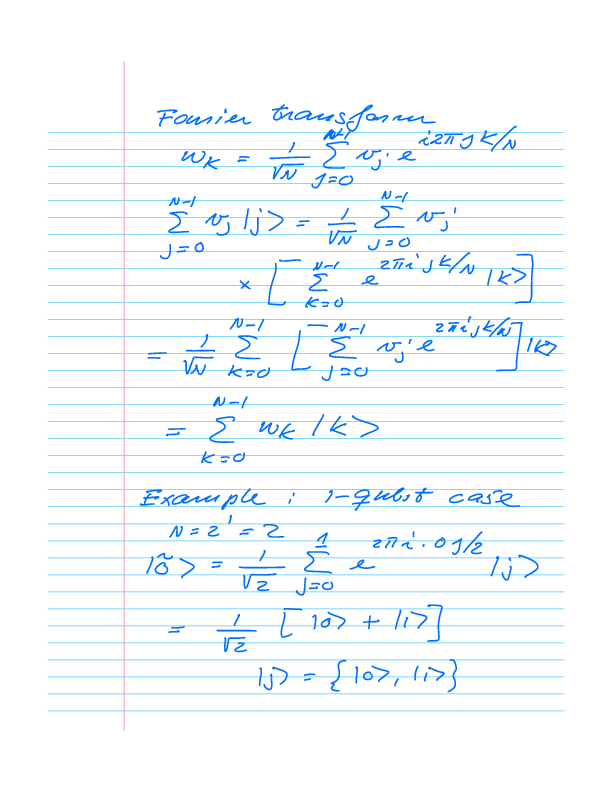 Fourier transform
w_k = 1/√N ∑_{j=0}^{N-1} v_j · e^{i2πjk/N}
∑_{j=0}^{N-1} v_j |j> = 1/√N ∑_{j=0}^{N-1} v_j
× [ ∑_{k=0}^{N-1} e^{2πi jk/N} |k> ]
= 1/√N ∑_{k=0}^{N-1} [ ∑_{j=0}^{N-1} v_j e^{2πi jk/N} ] |k>
= ∑_{k=0}^{N-1} w_k |k>
Example : 1-qubit case
N = 2^1 = 2
|õ> = 1/√2 ∑_{j=0}^{1} e^{2πi · 0 j/2} |j>
= 1/√2 [ |0> + |1> ]
|j> = { |0>, |1> }